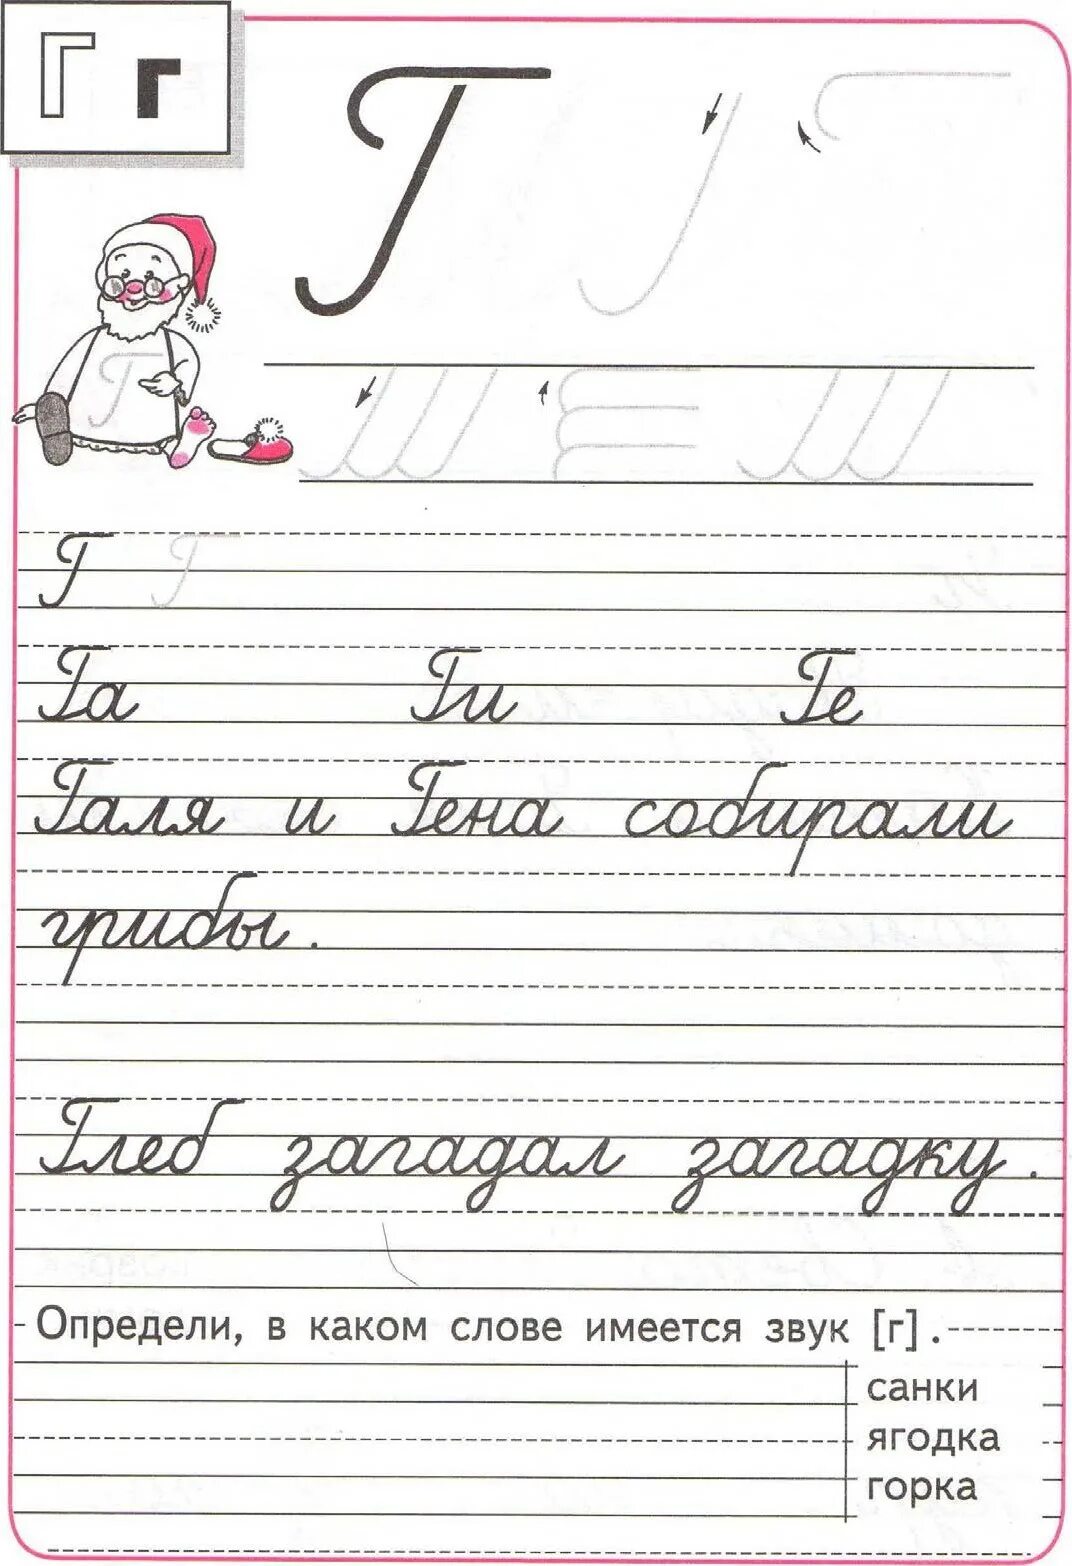 Г г
Г
Г Г
Га Ги Ге
Галя и Гена собирали
грибы.
Глеб загадал загадку.
Определи, в каком слове имеется звук [г].
санки
ягодка
горка